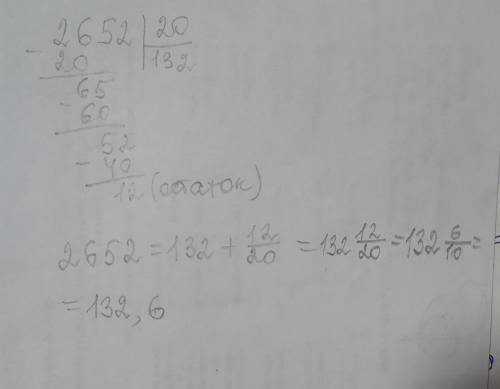 - 2652 | 20
20 | 132
65
- 60
52
- 40
12 (остаток)
2652 = 132 + 12/20 = 132 12/20 = 132 6/10 =
= 132,6